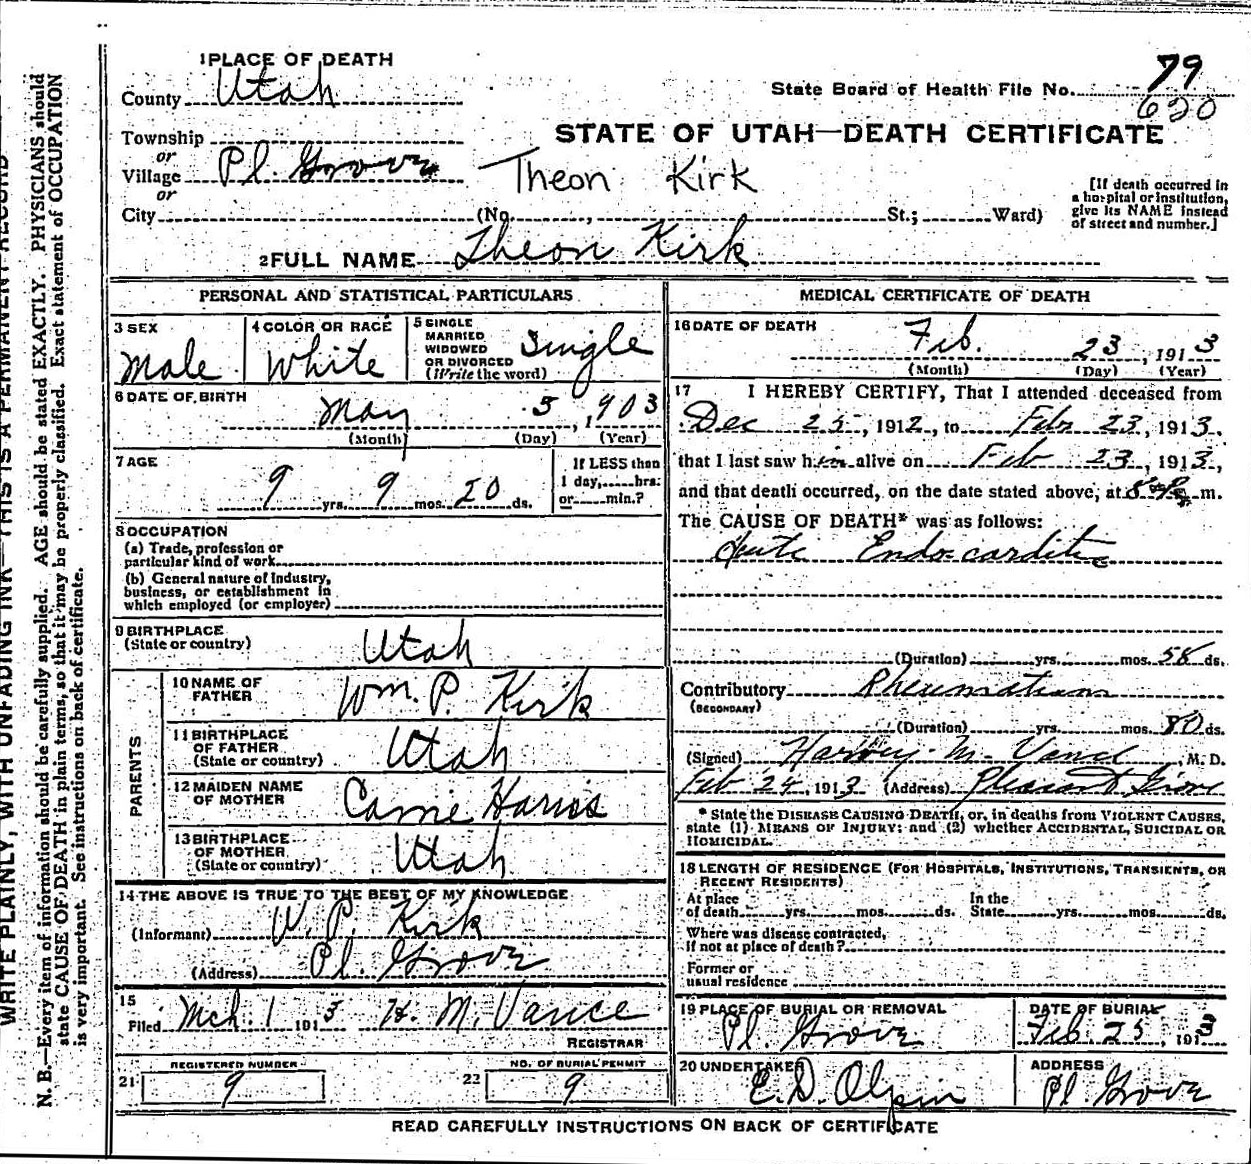 WRITE PLAINLY, WITH UNFADING INK—THIS IS A PERMANENT RECORD
N. B.—Every item of information should be carefully supplied. AGE should be stated EXACTLY. PHYSICIANS should
state CAUSE OF DEATH in plain terms, so that it may be properly classified. Exact statement of OCCUPATION
is very important. See instructions on back of certificate.
1 PLACE OF DEATH
County Utah
State Board of Health File No. 79
620
Township
or
Village Pl. Grove
or
STATE OF UTAH—DEATH CERTIFICATE
Theon Kirk
City (No. , St.; Ward)
[If death occurred in
a hospital or institution,
give its NAME instead
of street and number.]
2 FULL NAME Theon Kirk
PERSONAL AND STATISTICAL PARTICULARS
3 SEX
Male
4 COLOR OR RACE
White
5 SINGLE
MARRIED
WIDOWED
OR DIVORCED
(Write the word)
Single
6 DATE OF BIRTH
May 5, 1903
(Month) (Day) (Year)
7 AGE
9 yrs. 9 mos. 20 ds.
If LESS than
1 day, hrs.
or min.?
8 OCCUPATION
(a) Trade, profession or
particular kind of work
(b) General nature of Industry,
business, or establishment in
which employed (or employer)
9 BIRTHPLACE
(State or country)
Utah
PARENTS
10 NAME OF
FATHER
Wm. P. Kirk
11 BIRTHPLACE
OF FATHER
(State or country)
Utah
12 MAIDEN NAME
OF MOTHER
Carrie Harris
13 BIRTHPLACE
OF MOTHER
(State or country)
Utah
14 THE ABOVE IS TRUE TO THE BEST OF MY KNOWLEDGE
(Informant) W. P. Kirk
(Address) Pl. Grove
15
Filed Mch. 1 1913 H. M. Vance
REGISTRAR
REGISTERED NUMBER
21 9
NO. OF BURIAL PERMIT
22 9
MEDICAL CERTIFICATE OF DEATH
16 DATE OF DEATH
Feb. 23, 1913
(Month) (Day) (Year)
17 I HEREBY CERTIFY, That I attended deceased from
Dec 25, 1912, to Feb 23, 1913,
that I last saw him alive on Feb 23, 1913,
and that death occurred, on the date stated above, at 8 P. m.
The CAUSE OF DEATH* was as follows:
Acute Endocarditis
(Duration) yrs. mos. 58 ds.
Contributory Rheumatism
(SECONDARY)
(Duration) yrs. mos. 80 ds.
(Signed) Harvey M. Vance, M. D.
Feb 24, 1913 (Address) Pleasant Grove
* State the DISEASE CAUSING DEATH, or, in deaths from VIOLENT CAUSES,
state (1) MEANS OF INJURY; and (2) whether ACCIDENTAL, SUICIDAL OR
HOMICIDAL.
18 LENGTH OF RESIDENCE (FOR HOSPITALS, INSTITUTIONS, TRANSIENTS, OR
RECENT RESIDENTS)
At place
of death yrs. mos. ds.
In the
State yrs. mos. ds.
Where was disease contracted,
if not at place of death?
Former or
usual residence
19 PLACE OF BURIAL OR REMOVAL
Pl. Grove
DATE OF BURIAL
Feb. 25, 1913
20 UNDERTAKER
E. D. Olpin
ADDRESS
Pl. Grove
READ CAREFULLY INSTRUCTIONS ON BACK OF CERTIFICATE